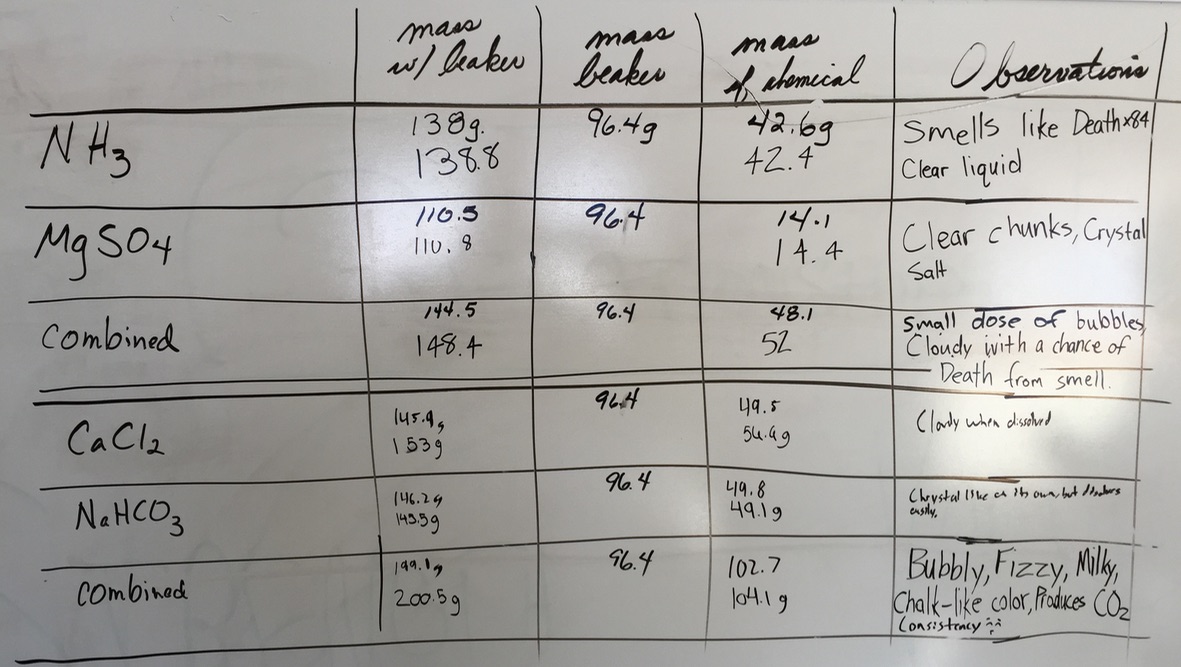 mass w/ beaker
mass beaker
mass of chemical
Observations
NH3
138g.
138.8
96.4g
42.6g
42.4
Smells like Death x84
Clear liquid
MgSO4
110.5
110.8
96.4
14.1
14.4
Clear chunks, Crystal
Salt
Combined
144.5
148.4
96.4
48.1
52
Small dose of bubbles,
Cloudy with a chance of
Death from smell.
CaCl2
145.9g
153g
96.4
49.5
56.6g
Clowdy when dissolved
NaHCO3
146.2g
145.5g
96.4
49.8
49.1g
Chrystal like on its own, but dissolves
easily.
Combined
199.1g
200.5g
96.4
102.7
104.1g
Bubbly, Fizzy, Milky,
Chalk-like color, Produces CO2
Consistency